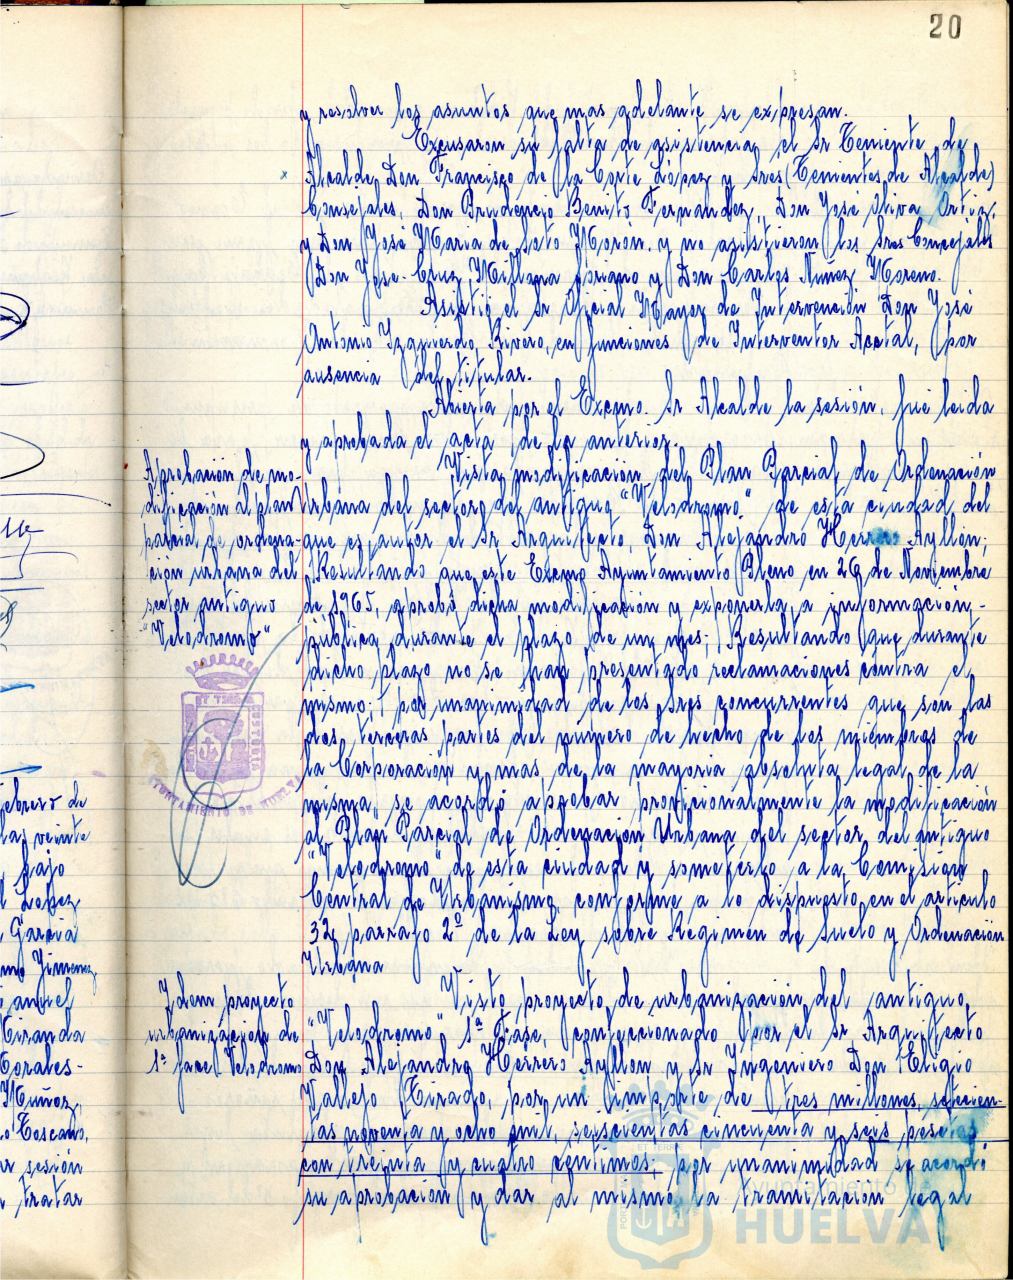 20
y resolver los asuntos que mas adelante se expresan.
Excusaron su falta de asistencia, el Sr Teniente de
Alcalde Don Francisco de la Corte López y Sres (Tenientes de Alcalde)
Consejales, Don Prudencio Benito Fernandez, Don José Oliva Ortiz,
y Don José Maria de Soto Moron. y no asistieron los Sres Concejales
Don Jose-Cruz Millana Soriano y Don Carlos Nuñez Moreno.
Asistió el Sr Oficial Mayor de Intervención Don José
Antonio Izquierdo Rivero, en funciones de Interventor Acctal, por
ausencia del titular.
Abierta por el Excmo. Sr Alcalde la sesión, fué leida
y aprobada el acta de la anterior.
Aprobación de mo-
dificación al plan
parcial de ordena-
ción urbana del
sector antiguo
"Velodromo"
Vista modificación del Plan Parcial de Ordenación
Urbana del sector del antiguo "Velodromo" de esta ciudad del
que es autor el Sr Arquitecto, Don Alejandro Herrero Ayllon;
Resultando que este Excmo Ayuntamiento Pleno en 26 de Noviembre
de 1965, aprobó dicha modificación y exponerla a información-
pública durante el plazo de un mes; Resultando que durante
dicho plazo no se han presentado reclamaciones contra el
mismo; por unanimidad de los Sres concurrentes que son las
dos terceras partes del numero de hecho de los miembros de
la Corporación y mas de la mayoria absoluta legal de la
misma, se acordó aprobar provicionalmente la modificación
al Plan Parcial de Ordenación Urbana del sector del antiguo
"Velodromo" de esta ciudad y someterlo a la Comisión
Central de Urbanismo conforme a lo dispuesto en el articulo
32, parrafo 2º de la Ley sobre Regimen de Suelo y Ordenación
Urbana
Idem proyecto
urbanización de
1ª face Velodromo
Visto proyecto de urbanización del antiguo
"Velodromo" 1ª Fase, confeccionado por el Sr Arquitecto
Don Alejandro Herrero Ayllon y Sr Ingeniero Don Eligio
Vallejo Tirado, por un importe de tres millones, setecien-
tas noventa y ocho mil, seiscientas cincuenta y seis pesetas
con treinta y cuatro centimos; por unanimidad se acordó
su aprobación y dar al mismo la tramitación legal
AYUNTAMIENTO DE HUELVA
ebrero de
las veinte
bajo
Lopez
Garcia
mo Jimenez,
anuel
Miranda
Corales-
Muñoz,
o Toscano,
sesión
tratar
Ayuntamiento de
HUELVA